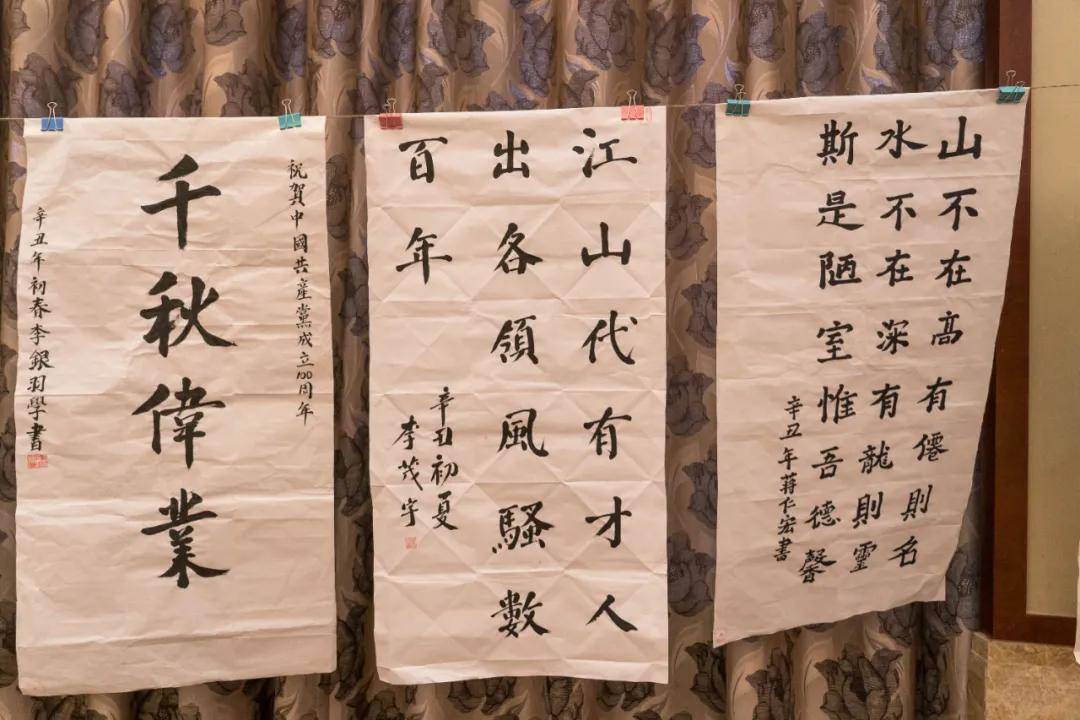 祝賀中國共産黨成立100周年
千秋偉業
辛丑年初春李銀羽學書
江山代有才人
出各領風騷數
百年
辛丑初夏
李茂宇
山不在高有僊則名
水不在深有龍則靈
斯是陋室惟吾德馨
辛丑年蒋仁宏書